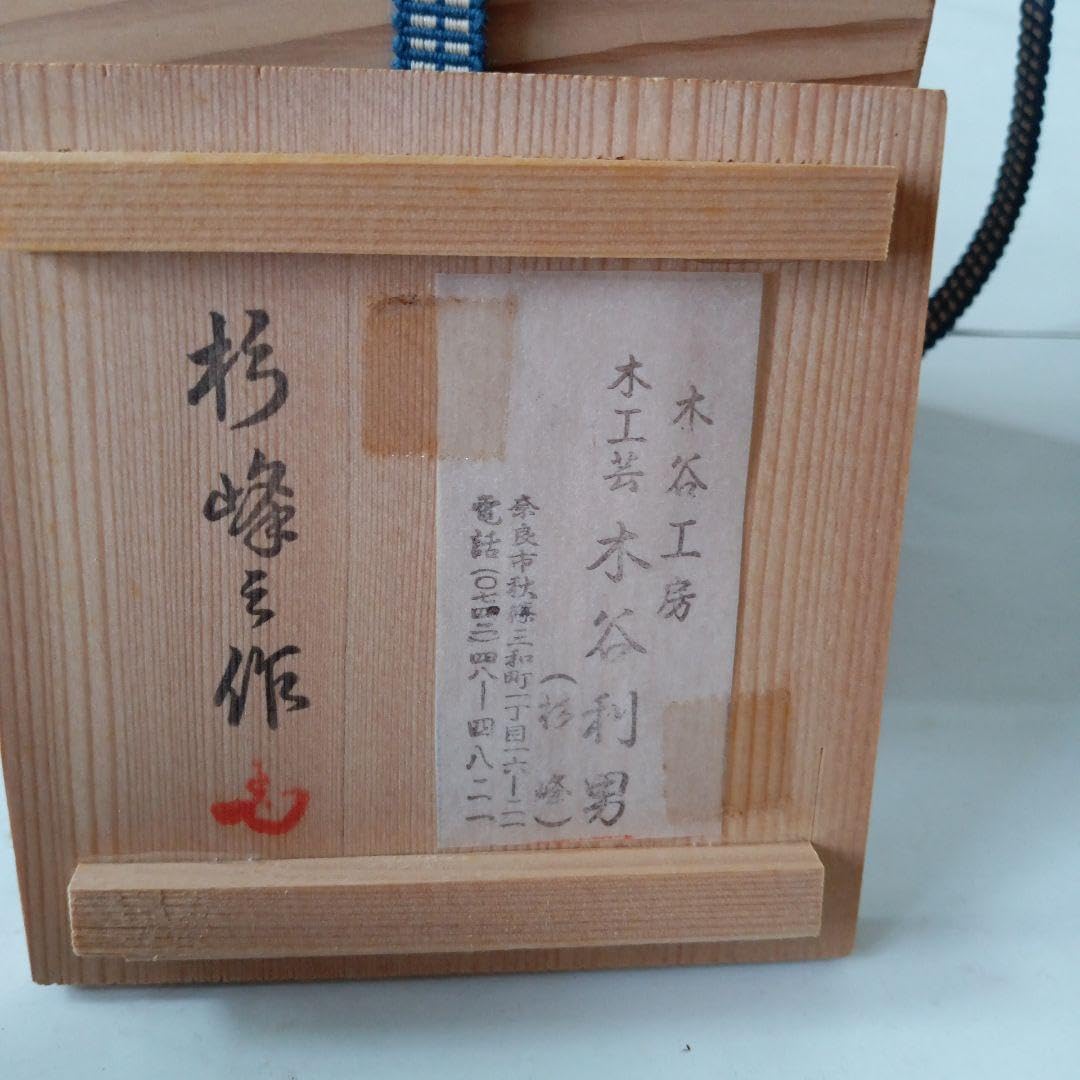 木谷工房
木工芸 木谷利男
(杉峰)
奈良市秋篠三和町一丁目一六ー二二
電話(〇七四二)四八ー四八二一
杉峰之作